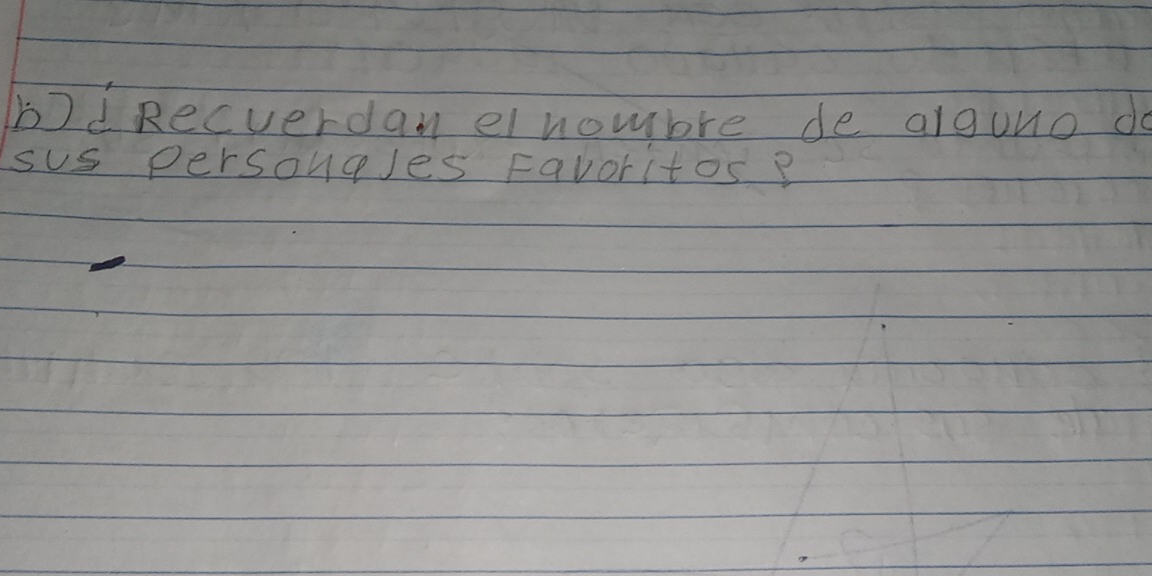 b) ¿Recuerdan el nombre de alguno de
sus personajes Favoritos?